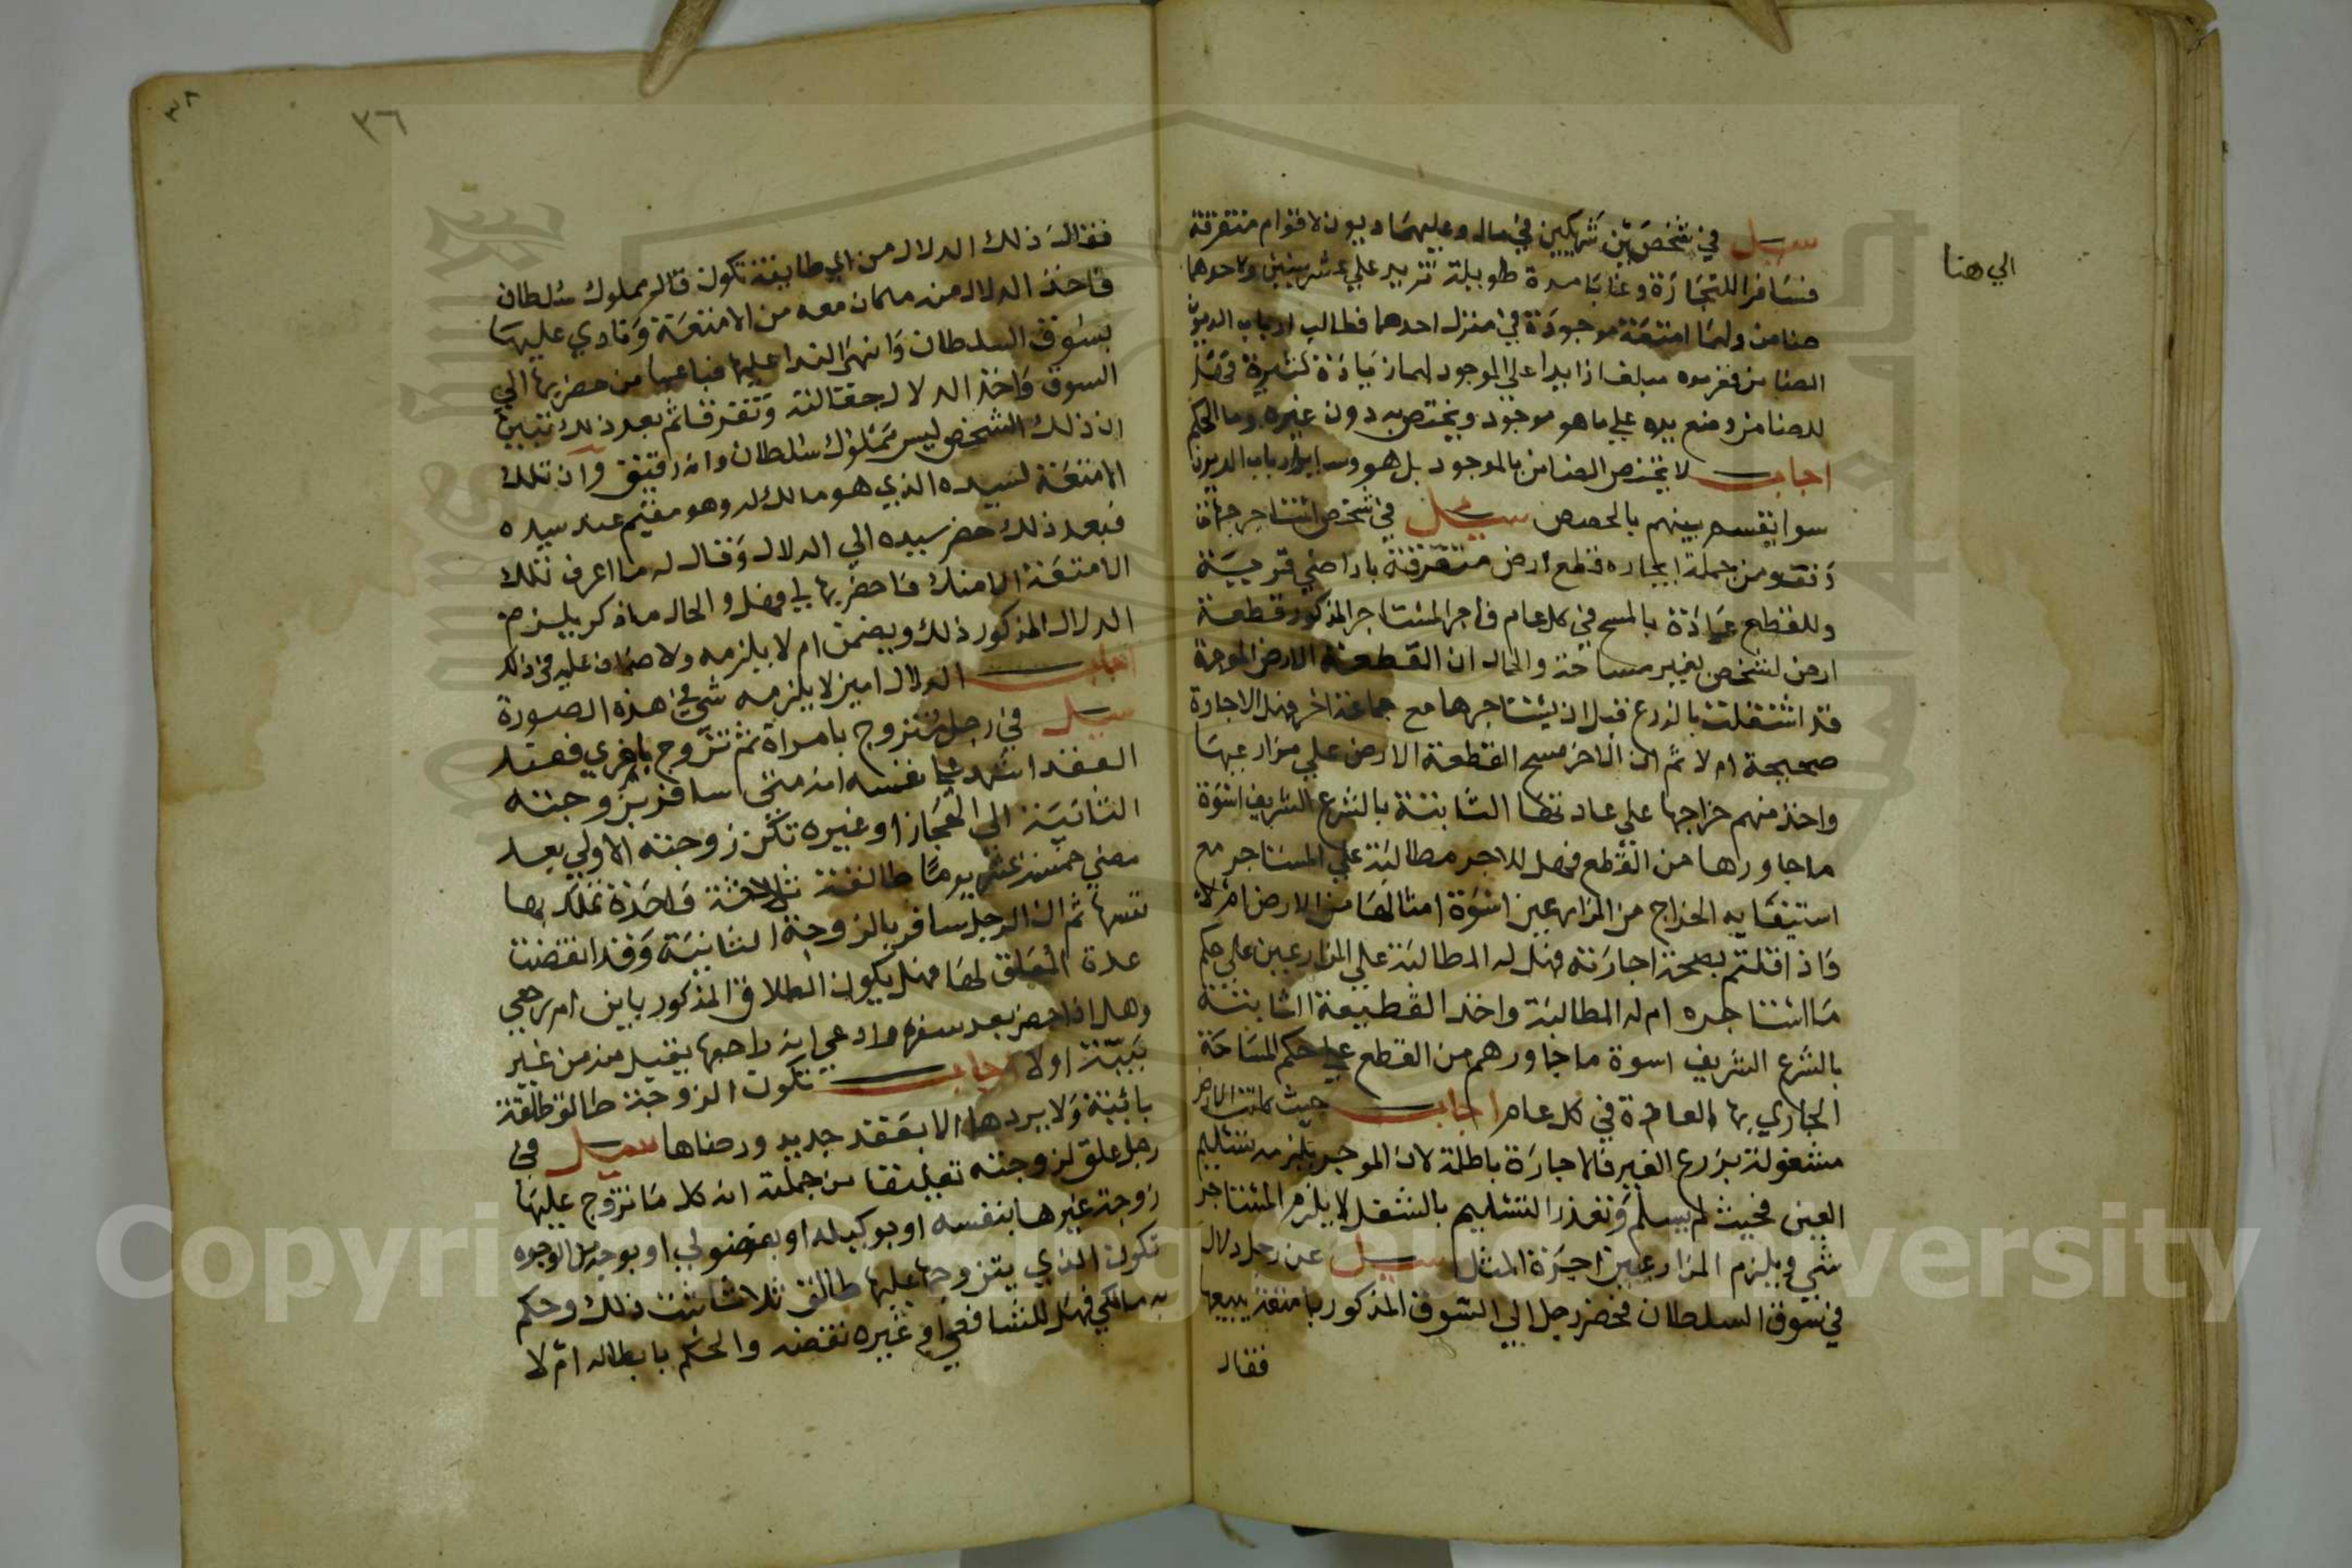 الي هنا
سيل في شخصين شريكين في مال وعليهما ديون لاقوام متفرقة
فسافرا للتجارة وغابا مدة طويلة تزيد علي عشر سنين ولاحدهما
ضامن ولهما امتعة موجودة في منزل احدهما فطالب ارباب الديون
الضامن فغرموه مبلغا زايدا علي الموجود لهما زيادة كثيرة فهل
للضامن وضع يده علي ما هو موجود ويختص به دون غيره وما الحكم
اجاب لا يختص الضامن بالموجود بل هو وساير ارباب الديون
سوا يقسم بينهم بالحصص سيل في شخص استاجر جهات
من جملة ايجاره قطع ارض متفرقة باراضي قرية
وللقطع عادة بالمسح في كل عام فاجر المستاجر المذكور قطعة
ارض لشخص بغير مساحة والحال ان القطعة الارض الموجرة
قد اشتغلت بالزرع قبل ان يستاجرها مع جماعة اخر فهل الاجارة
صحيحة ام لا ثم ان الاخر مسح القطعة الارض علي مزارعيها
واخذ منهم خراجها علي عادتها الثابتة بالشرع الشريف اسوة
ما جاورها من القطع فهل للاجر مطالبة علي المستاجر مع
استيفايه الخراج من المزارعين اسوة امثالها من الارض ام لا
واذا قلتم بصحة اجارته فهل له المطالبة علي المزارعين علي حكم
ما استاجره ام له المطالبة واخذ القطيعة الثابتة
بالشرع الشريف اسوة ما جاورهم من القطع علي حكم المساحة
الجاري بها العادة في كل عام اجاب حيث كانت الارض
مشغولة بزرع الغير فالاجارة باطلة لان الموجر يلزمه تسليم
العين فحيث لم يسلم وتعذر التسليم بالشغل لا يلزم المستاجر
شي ويلزم المزارعين اجرة المثل سيل عن رجل دلال
في سوق السلطان فحضر رجل الي السوق المذكور بامتعة يبيعها
فقال
٣٦
٣٨
فقال ذلك الدلال من اي طايفة تكون قال مملوك سلطان
فاخذ الدلال منه ما كان معه من الامتعة ونادي عليها
بسوق السلطان وانهي الندا عليها فباعها من حضر بها الي
السوق واخذ الدلال جعالته وتفرقا ثم بعد ذلك تبين
ان ذلك الشخص ليس مملوك سلطان وانه رقيق وان تلك
الامتعة لسيده الذي هو مالك له وهو مقيم عند سيده
فبعد ذلك حضر سيده الي الدلال وقال له ما اعرف تلك
الامتعة الا منك فاحضر بها لي فهل والحال ما ذكر يلزم
الدلال المذكور ذلك ويضمن ام لا يلزمه ولا ضمان عليه في ذلك
اجاب الدلال امين لا يلزمه شي في هذه الصورة
سيل في رجل متزوج بامراة ثم تزوج باخري فعند
العقد اشهد علي نفسه انه متي سافر بزوجته
الثانية الي الحجاز او غيره تكن زوجته الاولي بعد
مضي خمسة عشر يوما طالقة ثلاثة واحدة تملك بها
نفسها ثم ان الرجل سافر بالزوجة الثانية وقد انقضت
عدة المعلق لها فهل يكون الطلاق المذكور باين ام رجعي
وهل اذا حضر بعد سفره وادعي انه راجعها يقبل منه من غير
بينة اولا اجاب تكون الزوجة طالق طلقة
بائنة ولا يردها الا بعقد جديد ورضاها سيل في
رجل علق لزوجته تعليقا من جملته انه كل ما تزوج عليها
زوجة غيرها بنفسه او بوكيله او بفضولي او بوجه من الوجوه
تكون الذي يتزوجها عليها طالق ثلاثا ثبت ذلك وحكم
به مالكي فهل للشافعي او غيره نقضه والحكم بابطاله ام لا
Copyright © King Saud University